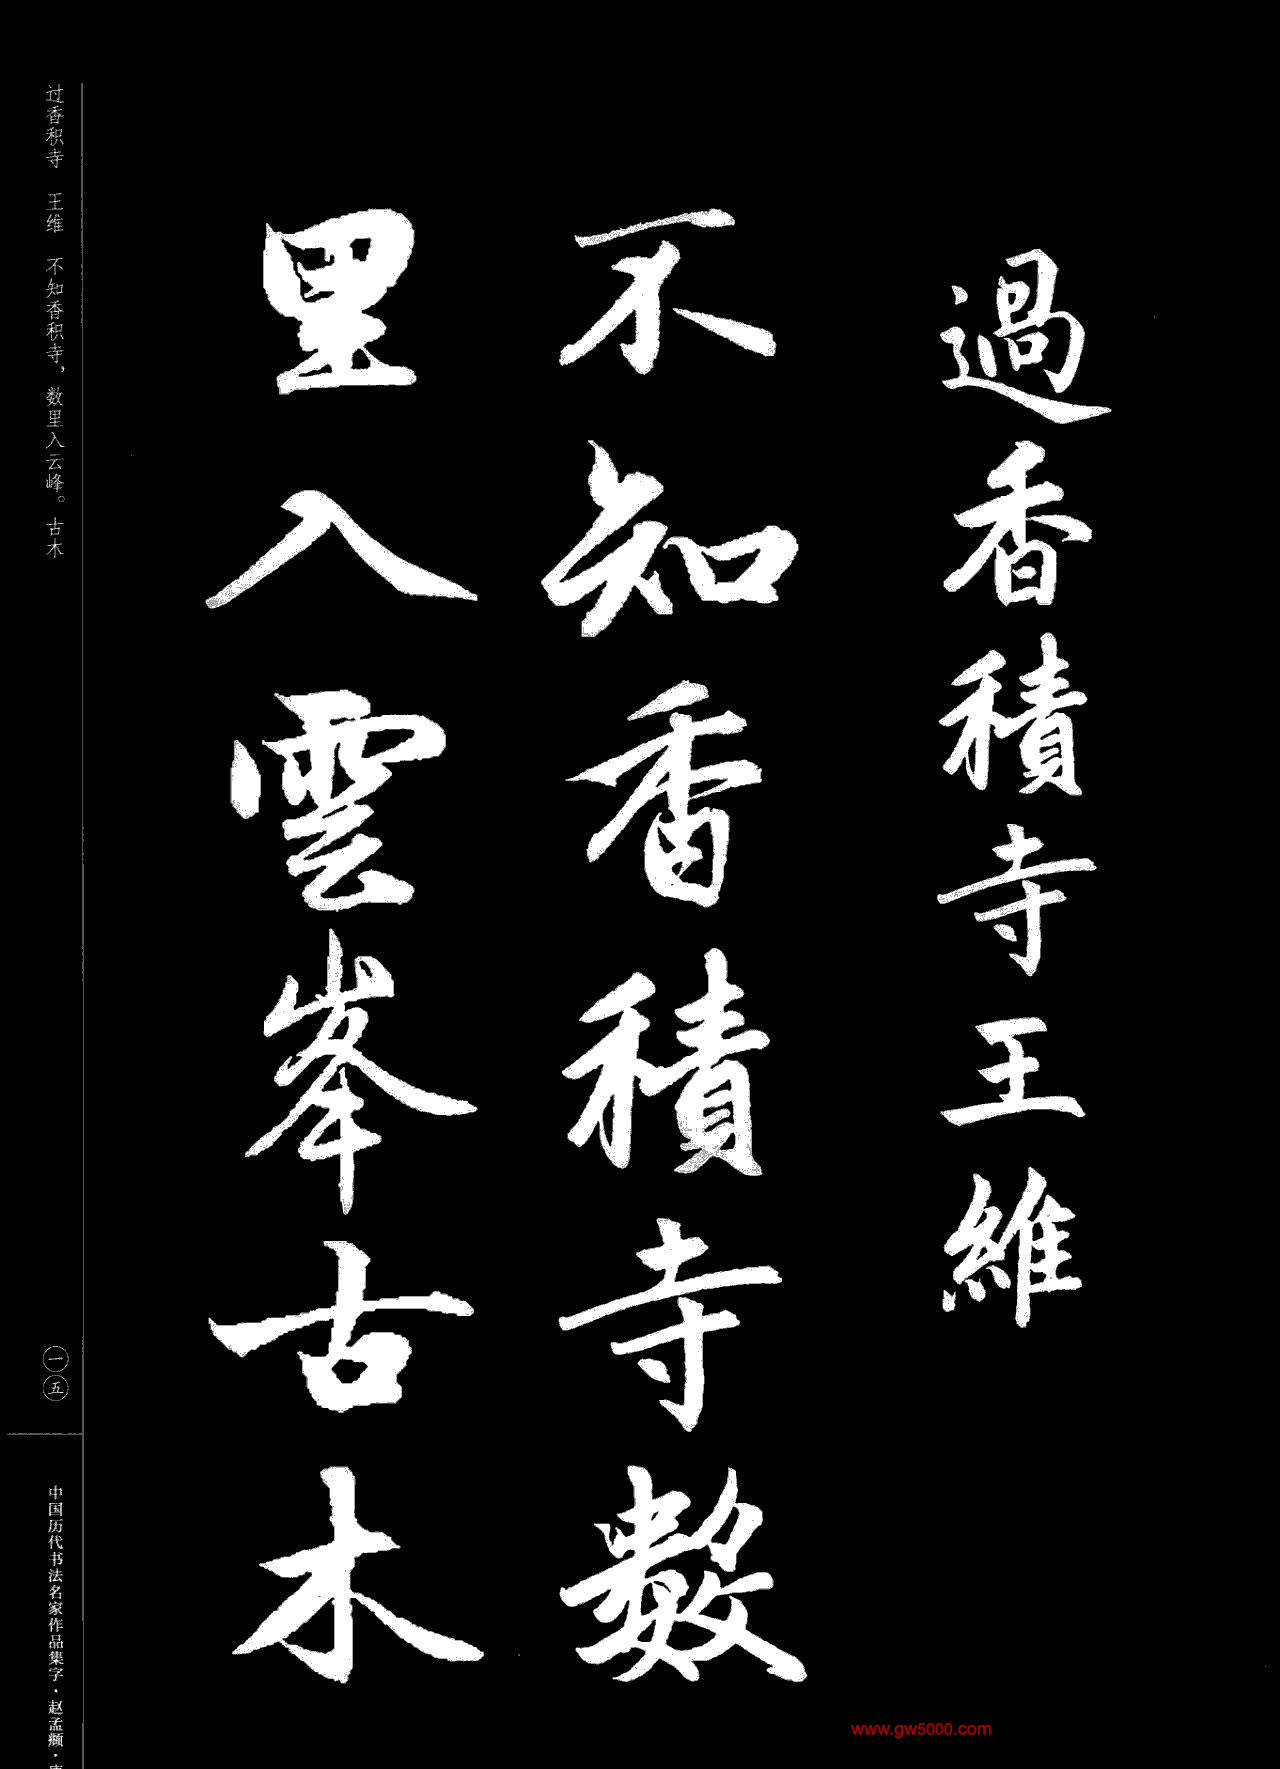 過香積寺王維
不知香積寺數
里入雲峯古木
过香积寺　王维　不知香积寺，数里入云峰。古木
一五
中国历代书法名家作品集字·赵孟頫·
www.gw5000.com